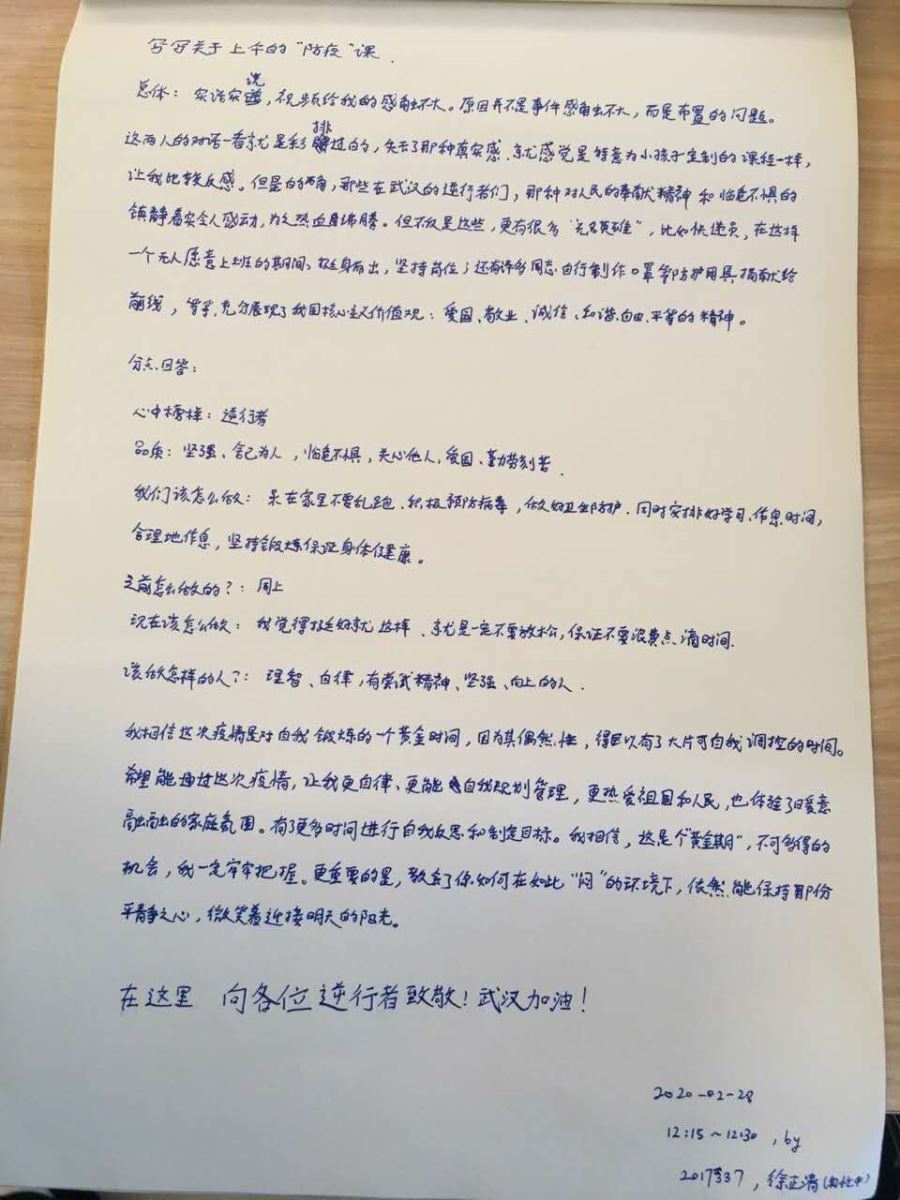 写写关于上午的“防疫”课.
总体：实话实说，视频给我的感触不大。原因并不是事件感触不大，而是布置的问题。
这两人的对话一看就是彩排过的，失去了那种真实感、就感觉是特意为小孩子定制的课程一样，
让我比较反感。但是的确，那些在武汉的逆行者们，那种对人民的奉献精神和临危不惧的
镇静着实令人感动，为之热血沸腾。但不仅是这些，更有很多“无名英雄”，比如快递员，在这样
一个无人愿意上班的期间，挺身而出，坚持岗位；还有许多同志自行制作口罩等防护用具，捐献给
前线，等等，充分展现了我国核心主义价值观：爱国、敬业、诚信、和谐、自由、平等的精神。
分点回答：
心中榜样：逆行者
品质：坚强、舍己为人，临危不惧，关心他人，爱国、勤劳刻苦.
我们该怎么做：呆在家里不要乱跑.积极预防病毒，做好卫生防护.同时安排好学习、作息时间，
合理地作息，坚持锻炼保证身体健康。
之前怎么做的？：同上
现在该怎么做：我觉得挺好就这样、就是一定不要放松，保证不要浪费点滴时间.
该做怎样的人？：理智、自律，有尝试精神、坚强、向上的人.
我相信这次疫情是对自我锻炼的一个黄金时间，因为其偶然性，得以有了大片可自我调控的时间。
希望能通过这次疫情，让我更自律、更能自我规划管理，更热爱祖国和人民，也体验了暖意
融融的家庭氛围。有了更多时间进行自我反思和制定目标。我相信，这是个“黄金期”，不可多得的
机会，我一定牢牢把握。更重要的是，教会了你如何在如此“闷”的环境下，依然能保持那份
平静之心，微笑着迎接明天的阳光。
在这里 向各位逆行者致敬！武汉加油！
2020-02-28
12:15~12:30，by